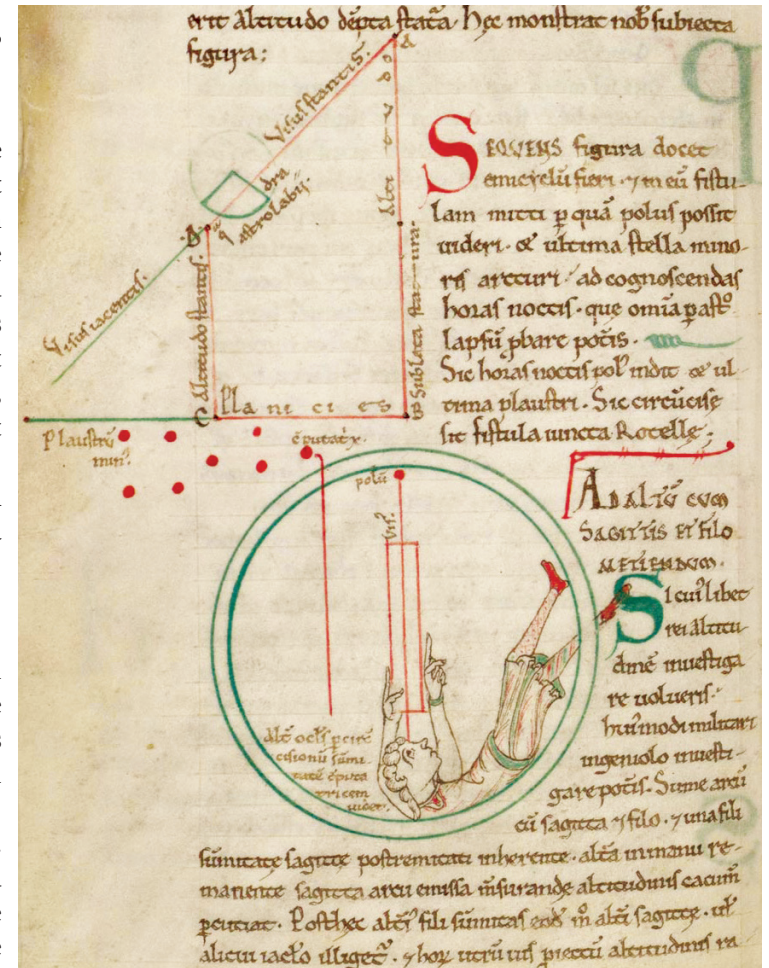 erit altitudo dẽpta stata. Hec monstrat nob subiecta
figura:
A
Altitudo
Visus stantis.
quadra
astrolabii.
B
Visus iacentis.
Altitudo stantis.
Sublata statura.
C
Planicies
SEQVENS figura docet
emicyclũ fieri. ⁊ in eũ fistu-
lam mitti p quã polus possit
uideri. & ultima stella mino-
ris arcturi. ad cognoscendas
horas noctis. que omia p ast
lapsũ pbare potis.
Sic horas noctis pol indit & ul
tima plaustri. Sic circũcise
sit fistula iuncta Rotelle;
Plaustrũ
min
polũ
AD ALTŨ CVM
SAGITTIS ET FILO
METIENDVM.
SI cui libet
rei altitu
dinẽ inuestiga
re uolueris.
hui modi militari
ingeniolo inuesti-
gare potis. Sume arcũ
cũ sagitta ⁊ filo. ⁊ una fili
sũmitate sagitte postremitati inherente. altã in manu re-
manente sagitta arcu emissa msurande altitudinis cacum
pcutiat. Post hec altĩ fili sũmitas eod m altĩ sagitte. ul
alicui iaclo illiget. ⁊ hoy utrũ uis piectũ altitudinis ra